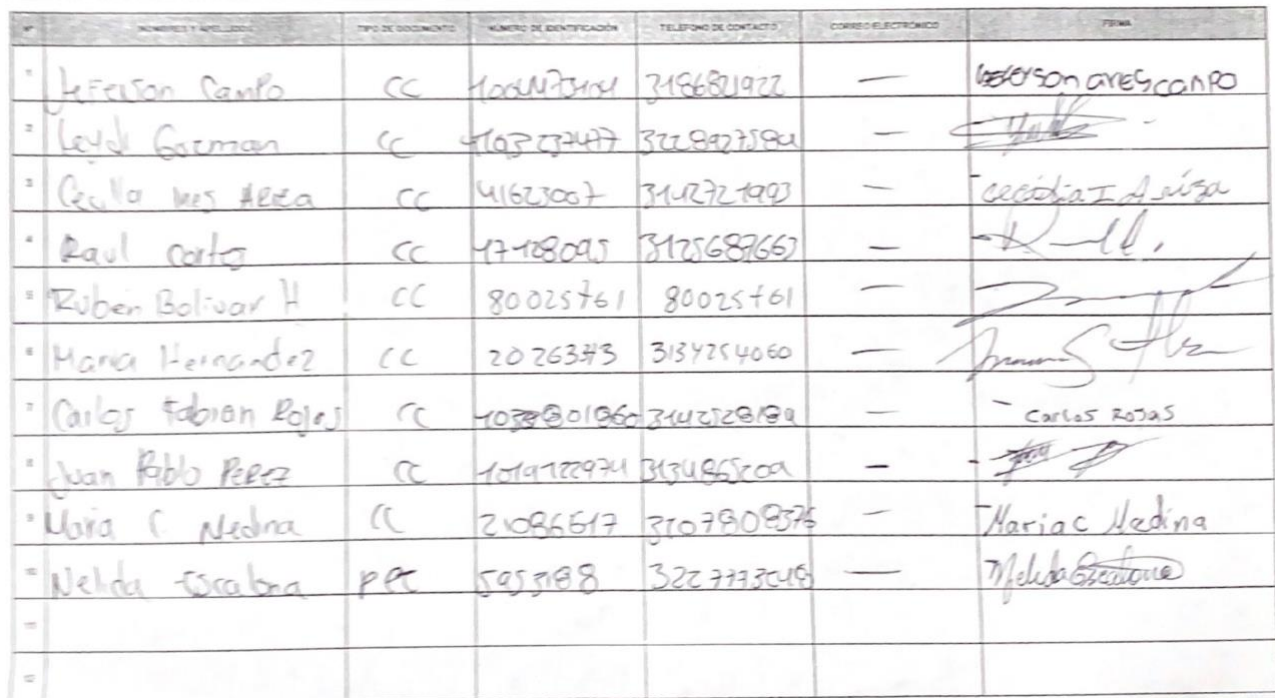 Nº NOMBRES Y APELLIDOS TIPO DE DOCUMENTO NUMERO DE IDENTIFICACIÓN TELEFONO DE CONTACTO CORREO ELECTRONICO FIRMA
1 Jeferson Campo CC 3186821922 — campo
2 Leydi Gozman CC 3228927584 —
3 Cecilia Ines CC 41623007 3142721993 — I
4 Raul Cortes CC 17128095 3125689663 —
5 Ruben Bolivar H CC 80025761 80025761 —
6 Maria Hernandez CC 2026373 3134254060 —
7 Carlos Fabian Rojas CC 3142528189 — Carlos Rojas
8 Juan Pablo Perez CC 1019122974 —
9 Maria C Medina CC 21086617 3207808376 — Maria C Medina
10 Nelida Escalona PPT 5953188 3227773048 — Nelida Escalona
11
12